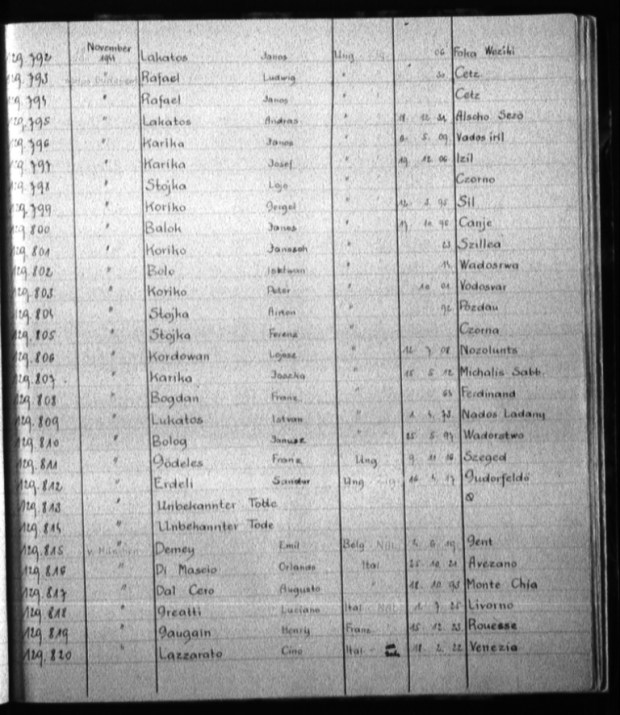 129.792 November 1944 Lakatos Janos Ung 06 Foka Wezihi
129.793 " Rafael Ludwig " 30 Cetz
129.794 " Rafael Janos " Cetz
129.795 " Lakatos Andras " 12 Alscho Sezö
129.796 " Karika Janos " 5. 09 Vados iril
129.797 " Karika Josef " 19 12 06 Izil
129.798 " Stojka Lajo " Czorno
129.799 " Koriko " 12 2 95 Sil
129.800 " Baloh Janos " 17 10 98 Canje
129.801 " Koriko " 23 Szillea
129.802 " Bolo " Wadosrwa
129.803 " Koriko Peter " 10 01 Vodosvar
129.804 " Stojka " 92 Pozdau
129.805 " Stojka Ferenz " Czorna
129.806 " Kordowan Lajosz " 12 7 08 Nozolunts
129.807 " Karika Joszka " 15 5 12 Michalis Sabb.
129.808 " Bogdan Franz " Ferdinand
129.809 " Lukatos Istvan " 1 Nados Ladany
129.810 " Bolog " 25 5 97 Wadorstwo
129.811 " Gödeles Franz Ung 9 11 Szeged
129.812 " Erdeli Sandor Ung 17 Gudorfeldö
129.813 " Unbekannter Tote
129.814 " Unbekannter Tode
129.815 v. München Demey Emil Belg 6 19 Gent
129.816 " Di Mascio Orlando Ital 25 10 21 Avezano
129.817 " Dal Cero Augusto " 18 10 93 Monte Chia
129.818 " Greatti Luciano Ital 1 7 25 Livorno
129.819 " Gaugain Henry Franz 15 12 23 Rouesse
129.820 " Lazzarato Gino Ital 18 2 22 Venezia